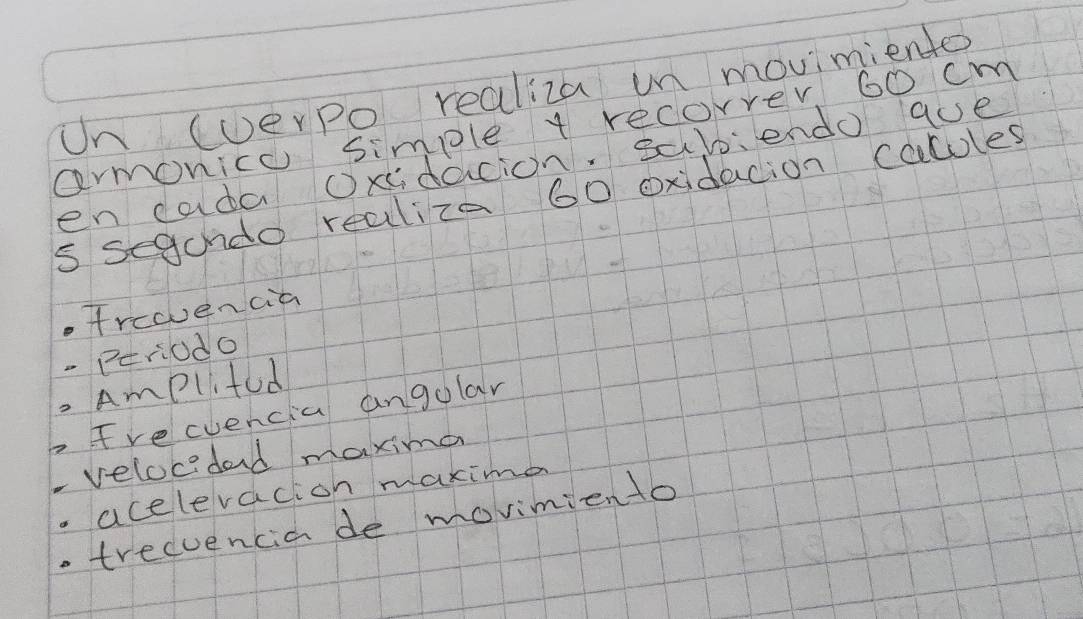 Un cuerpo realiza un movimiento
armonico simple y recorrer 60 cm
en cada oxidacion. sabiendo que
5 segundo realiza 60 oxidacion calcules
• Frecuencia
- Periodo
• Amplitud
• Frecuencia angular
• velocidad maxima
• aceleracion maxima
• frecuencia de movimiento